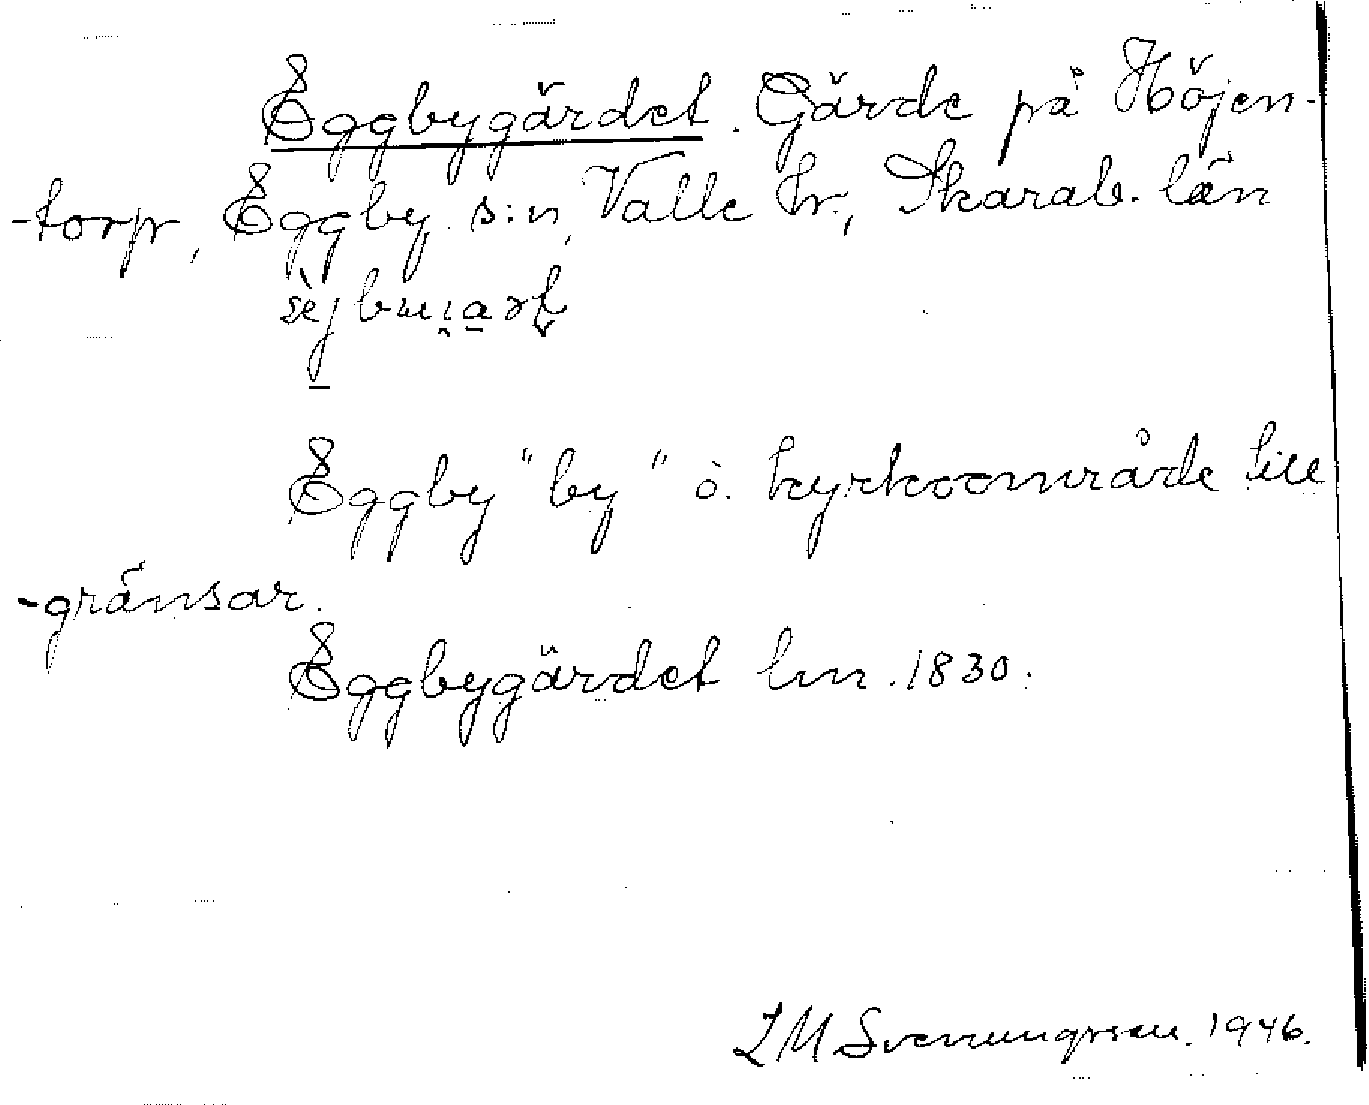 Eggbygärdet. Gärde på Höjen-
-torp, Eggby s:n, Valle hr., Skarab. län
Eggby "by" o. kyrkoområde till
-gränsar.
Eggbygärdet lm. 1830.
L M Svenungsson. 1946.